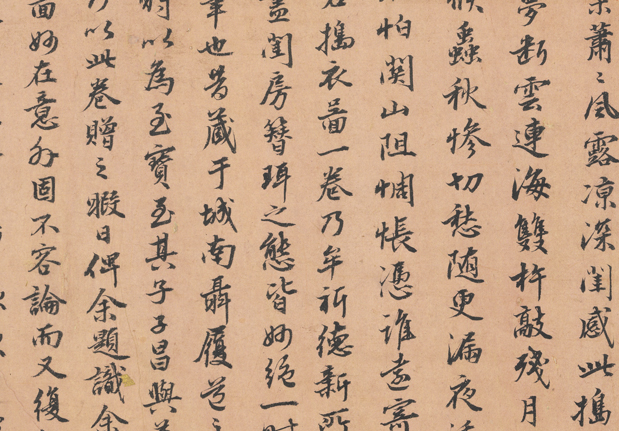 蕭〻風露凉深閨感此搗
夢断雲連海雙杵敲殘月
蟲秋惨切愁随更漏夜
怕関山阻惆悵憑誰遠寄
搗衣啚一卷乃牟祈德新所
盖閨房簪珥之態皆妙絕一時
也昔藏于城南聶履道
以為至寳至其子子昌與
以此卷贈之暇日俾余題識余
面妙在意外固不容論而又復